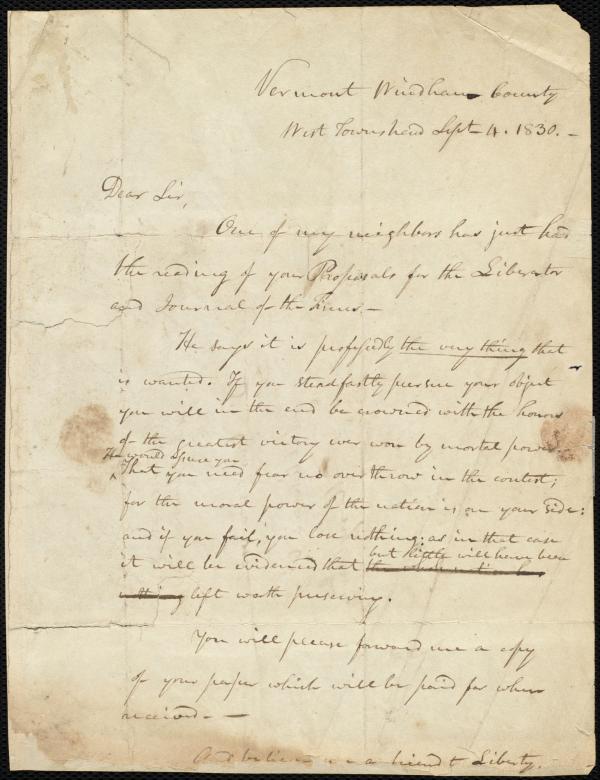 Vermont Windham County
West Townshend Sept 4. 1830. -
Dear Sir,
One of my neighbors has just had
the reading of your Proposals for the Liberator
and Journal of the Times. -
He says it is professedly the very thing that
is wanted. If you steadfastly pursue your object
you will in the end be crowned with the honor
of the greatest victory ever won by mortal power.
He would assure you
That you need fear no overthrow in the contest;
for the moral power of the nation is on your side:
and if you fail, you lose nothing: as in that case
but little will have been
it will be evidenced that the whole nation has
nothing left worth preserving.
You will please forward me a copy
of your paper which will be paid for when
received. -
And believe me a friend to Liberty.